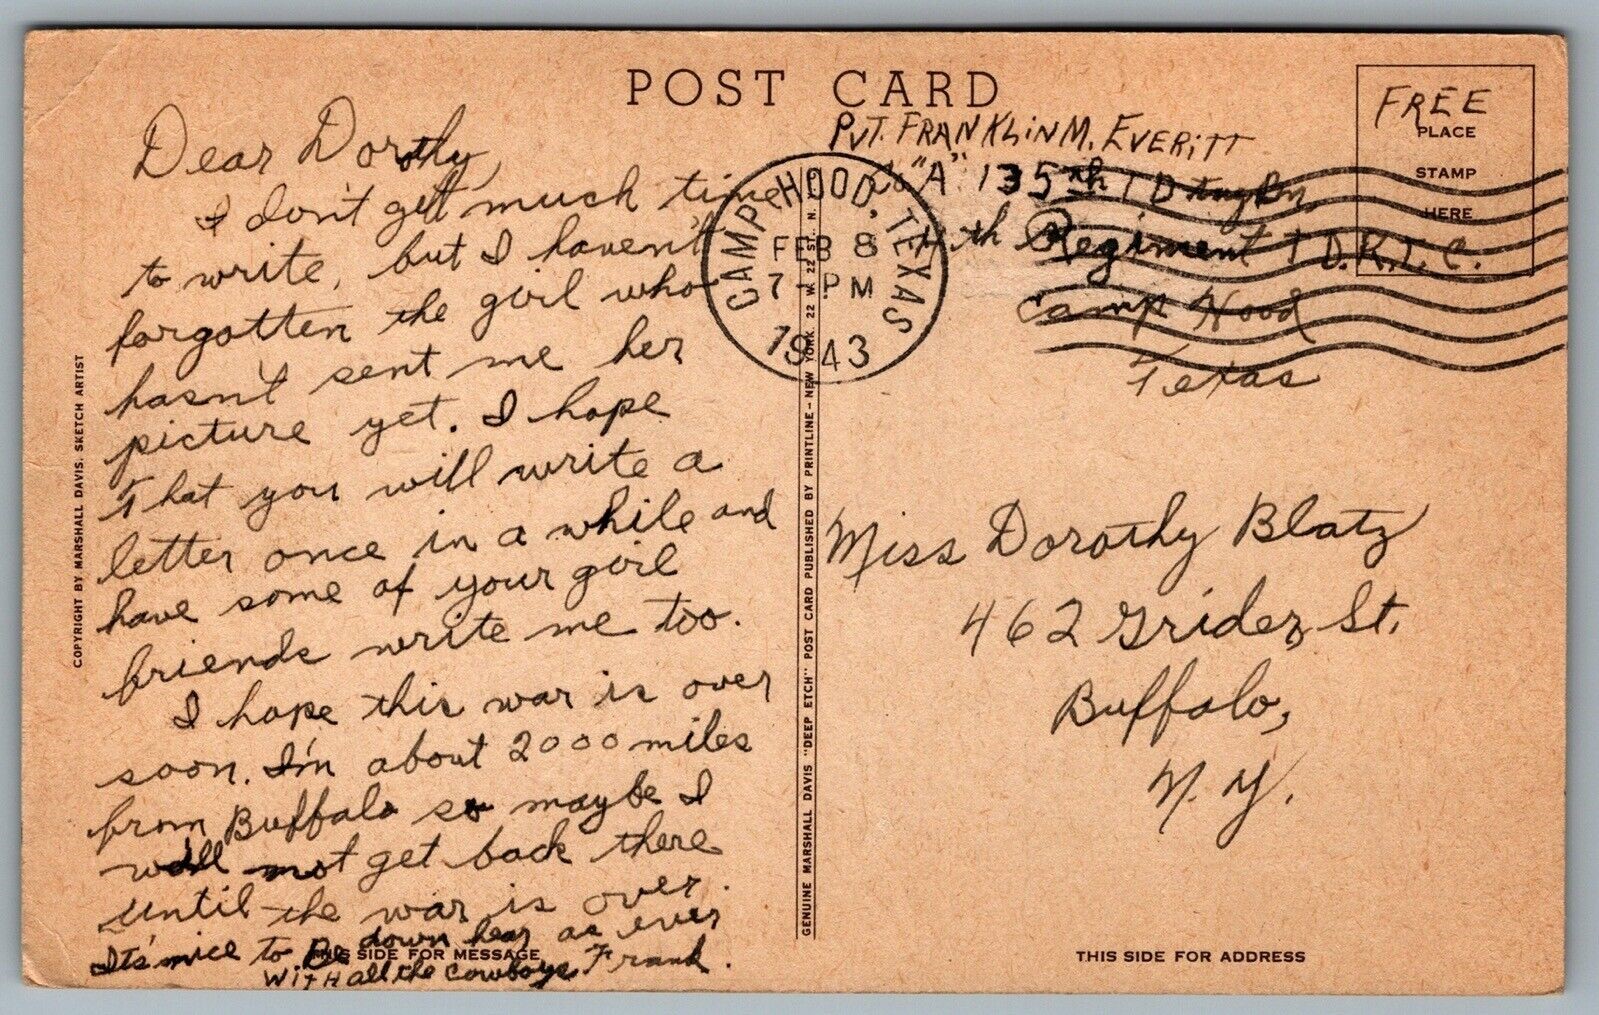 POST CARD
FREE
PLACE
STAMP
HERE
Pvt. FRANKLIN M. EVERITT
Co "A" 135th T D Tng Bn
4th Regiment T D. R. T. C.
Camp Hood
Texas
CAMP HOOD, TEXAS
FEB 8
7-PM
1943
Dear Dorothy,
I don't get much time
to write, but I haven't
forgotten the girl who
hasn't sent me her
picture yet. I hope
that you will write a
letter once in a while and
have some of your girl
friends write me too.
I hope this war is over
soon. I'm about 2000 miles
from Buffalo so maybe I
will not get back there
until the war is over.
Its' nice to Be down hear as ever
WITH all the cowboys, Frank.
Miss Dorothy Blatz
462 Grider St.
Buffalo,
N. Y.
COPYRIGHT BY MARSHALL DAVIS, SKETCH ARTIST
GENUINE MARSHALL DAVIS "DEEP ETCH" POST CARD PUBLISHED BY PRINTLINE-NEW YORK 22 W. 22 ST. N. Y.
THIS SIDE FOR MESSAGE
THIS SIDE FOR ADDRESS